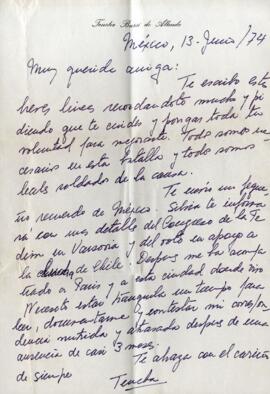 Tencha Bussi de Allende
México, 13-Junio/74
Muy querida amiga:
Te escribo estas
breves líneas recordándote mucho y pi
diendo que te cuides y pongas toda tu
voluntad para mejorarte. Todos somos ne
cesarios en esta batalla y todos somos
leales soldados de la causa.
Te envío un peque
ño recuerdo de México. Silvia te informa
rá con más detalles del Congreso de la Fe
dim en Varsovia y del voto en apoyo a
la de Chile. Después me ha acompa
ñado a París y a esta ciudad donde
Necesito estar tranquila un tiempo para
leer, documentarme y contestar mi correspon
dencia nutrida y atrasada después de una
ausencia de casi 3 meses.
Te abraza con el cariño
de siempre
Tencha